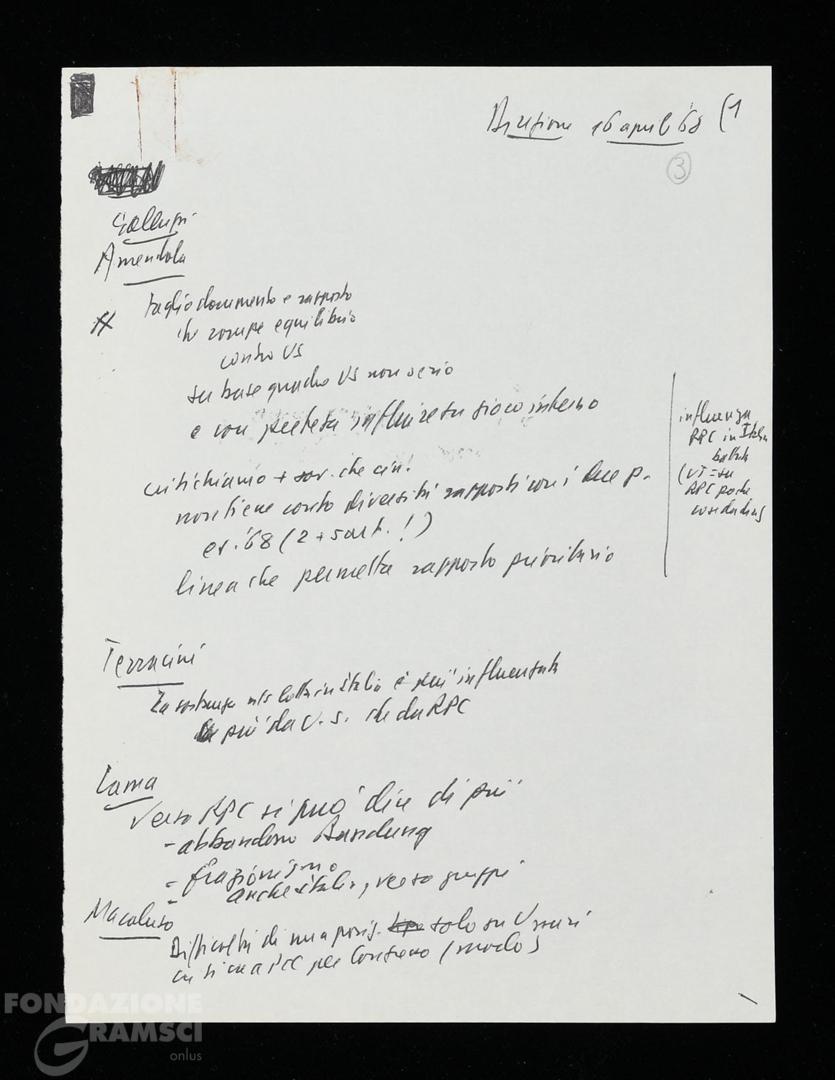 Direzione 16 april '68 (1
3
Galluzzi
Amendola
taglio documento e rapporto
che rompe equilibrio
contro US
su base giudizio US non serio
e con pretesa influire su gioco interno
critichiamo + sov. che cin.
non tiene conto diversità rapporti con i due p.
es. '68 (2 + sort. !)
linea che permetta rapporto prioritario
influenza
RPC in Italia
RPC poche
Terracini
La sostanza della lotta in Italia è più influenzata
più da U.S. che da RPC
Lama
Verso RPC si può dire di più
- abbandono Bandung
- frazionismo
anche Italia, verso gruppi
Macaluso
Difficoltà di una posiz. solo su Ussuri
PCC per Longo (modo)
FONDAZIONE
GRAMSCI
onlus